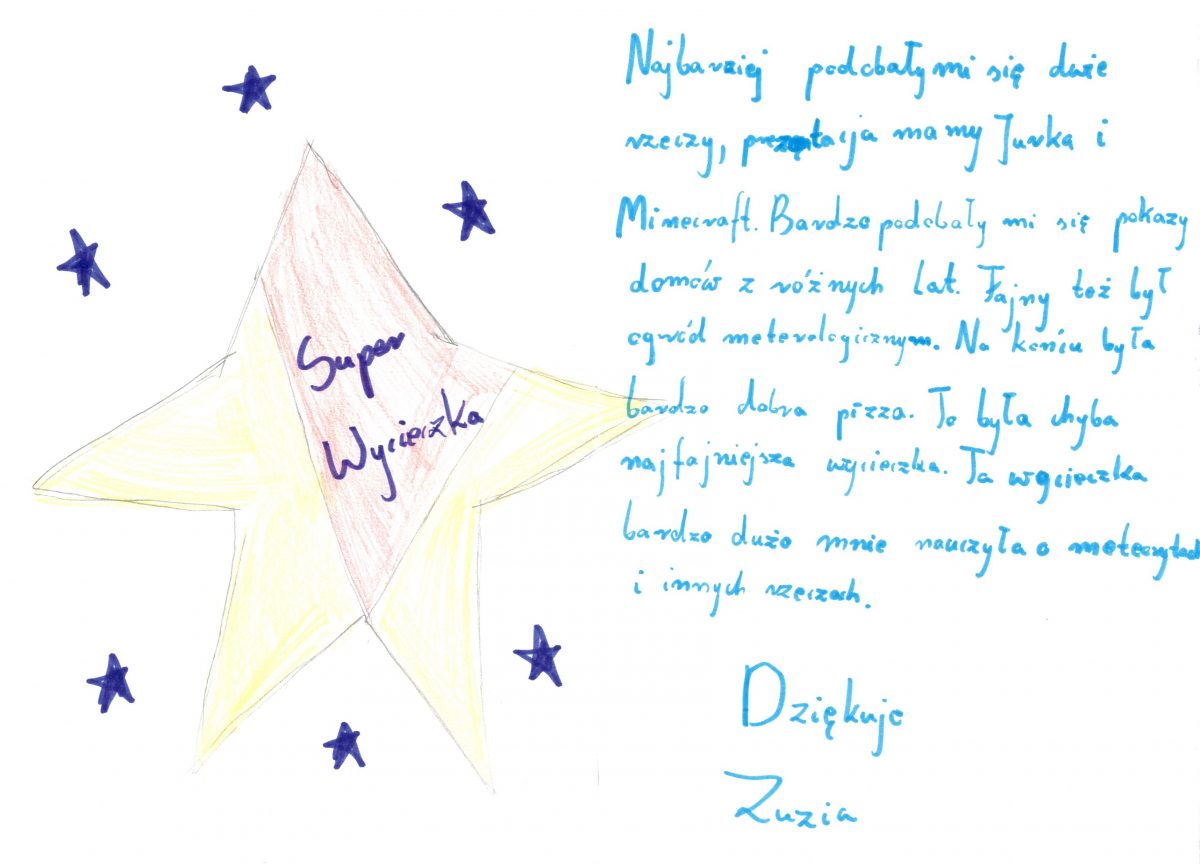 Super
Wycieczka
Najbardziej podobały mi się duże
rzeczy, prezętacja mamy Jurka i
Minecraft. Bardzo podobały mi się pokazy
domów z różnych lat. Fajny też był
ogród meterologicznym. Na końcu była
bardzo dobra pizza. To była chyba
najfajniejsza wycieczka. Ta wycieczka
bardzo dużo mnie nauczyła o meteorytach
i innych rzeczach.
Dziękuje
Zuzia